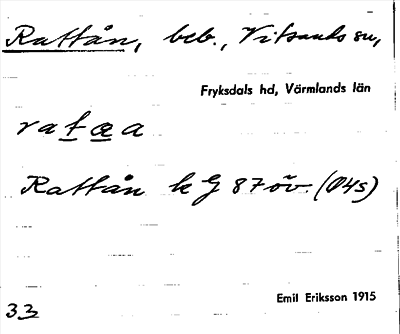 Rattån, beb., Vitsands sn,
Fryksdals hd, Värmlands län
ratæa
Rattån k G 87 öv. (Ö4s)
Emil Eriksson 1915
33